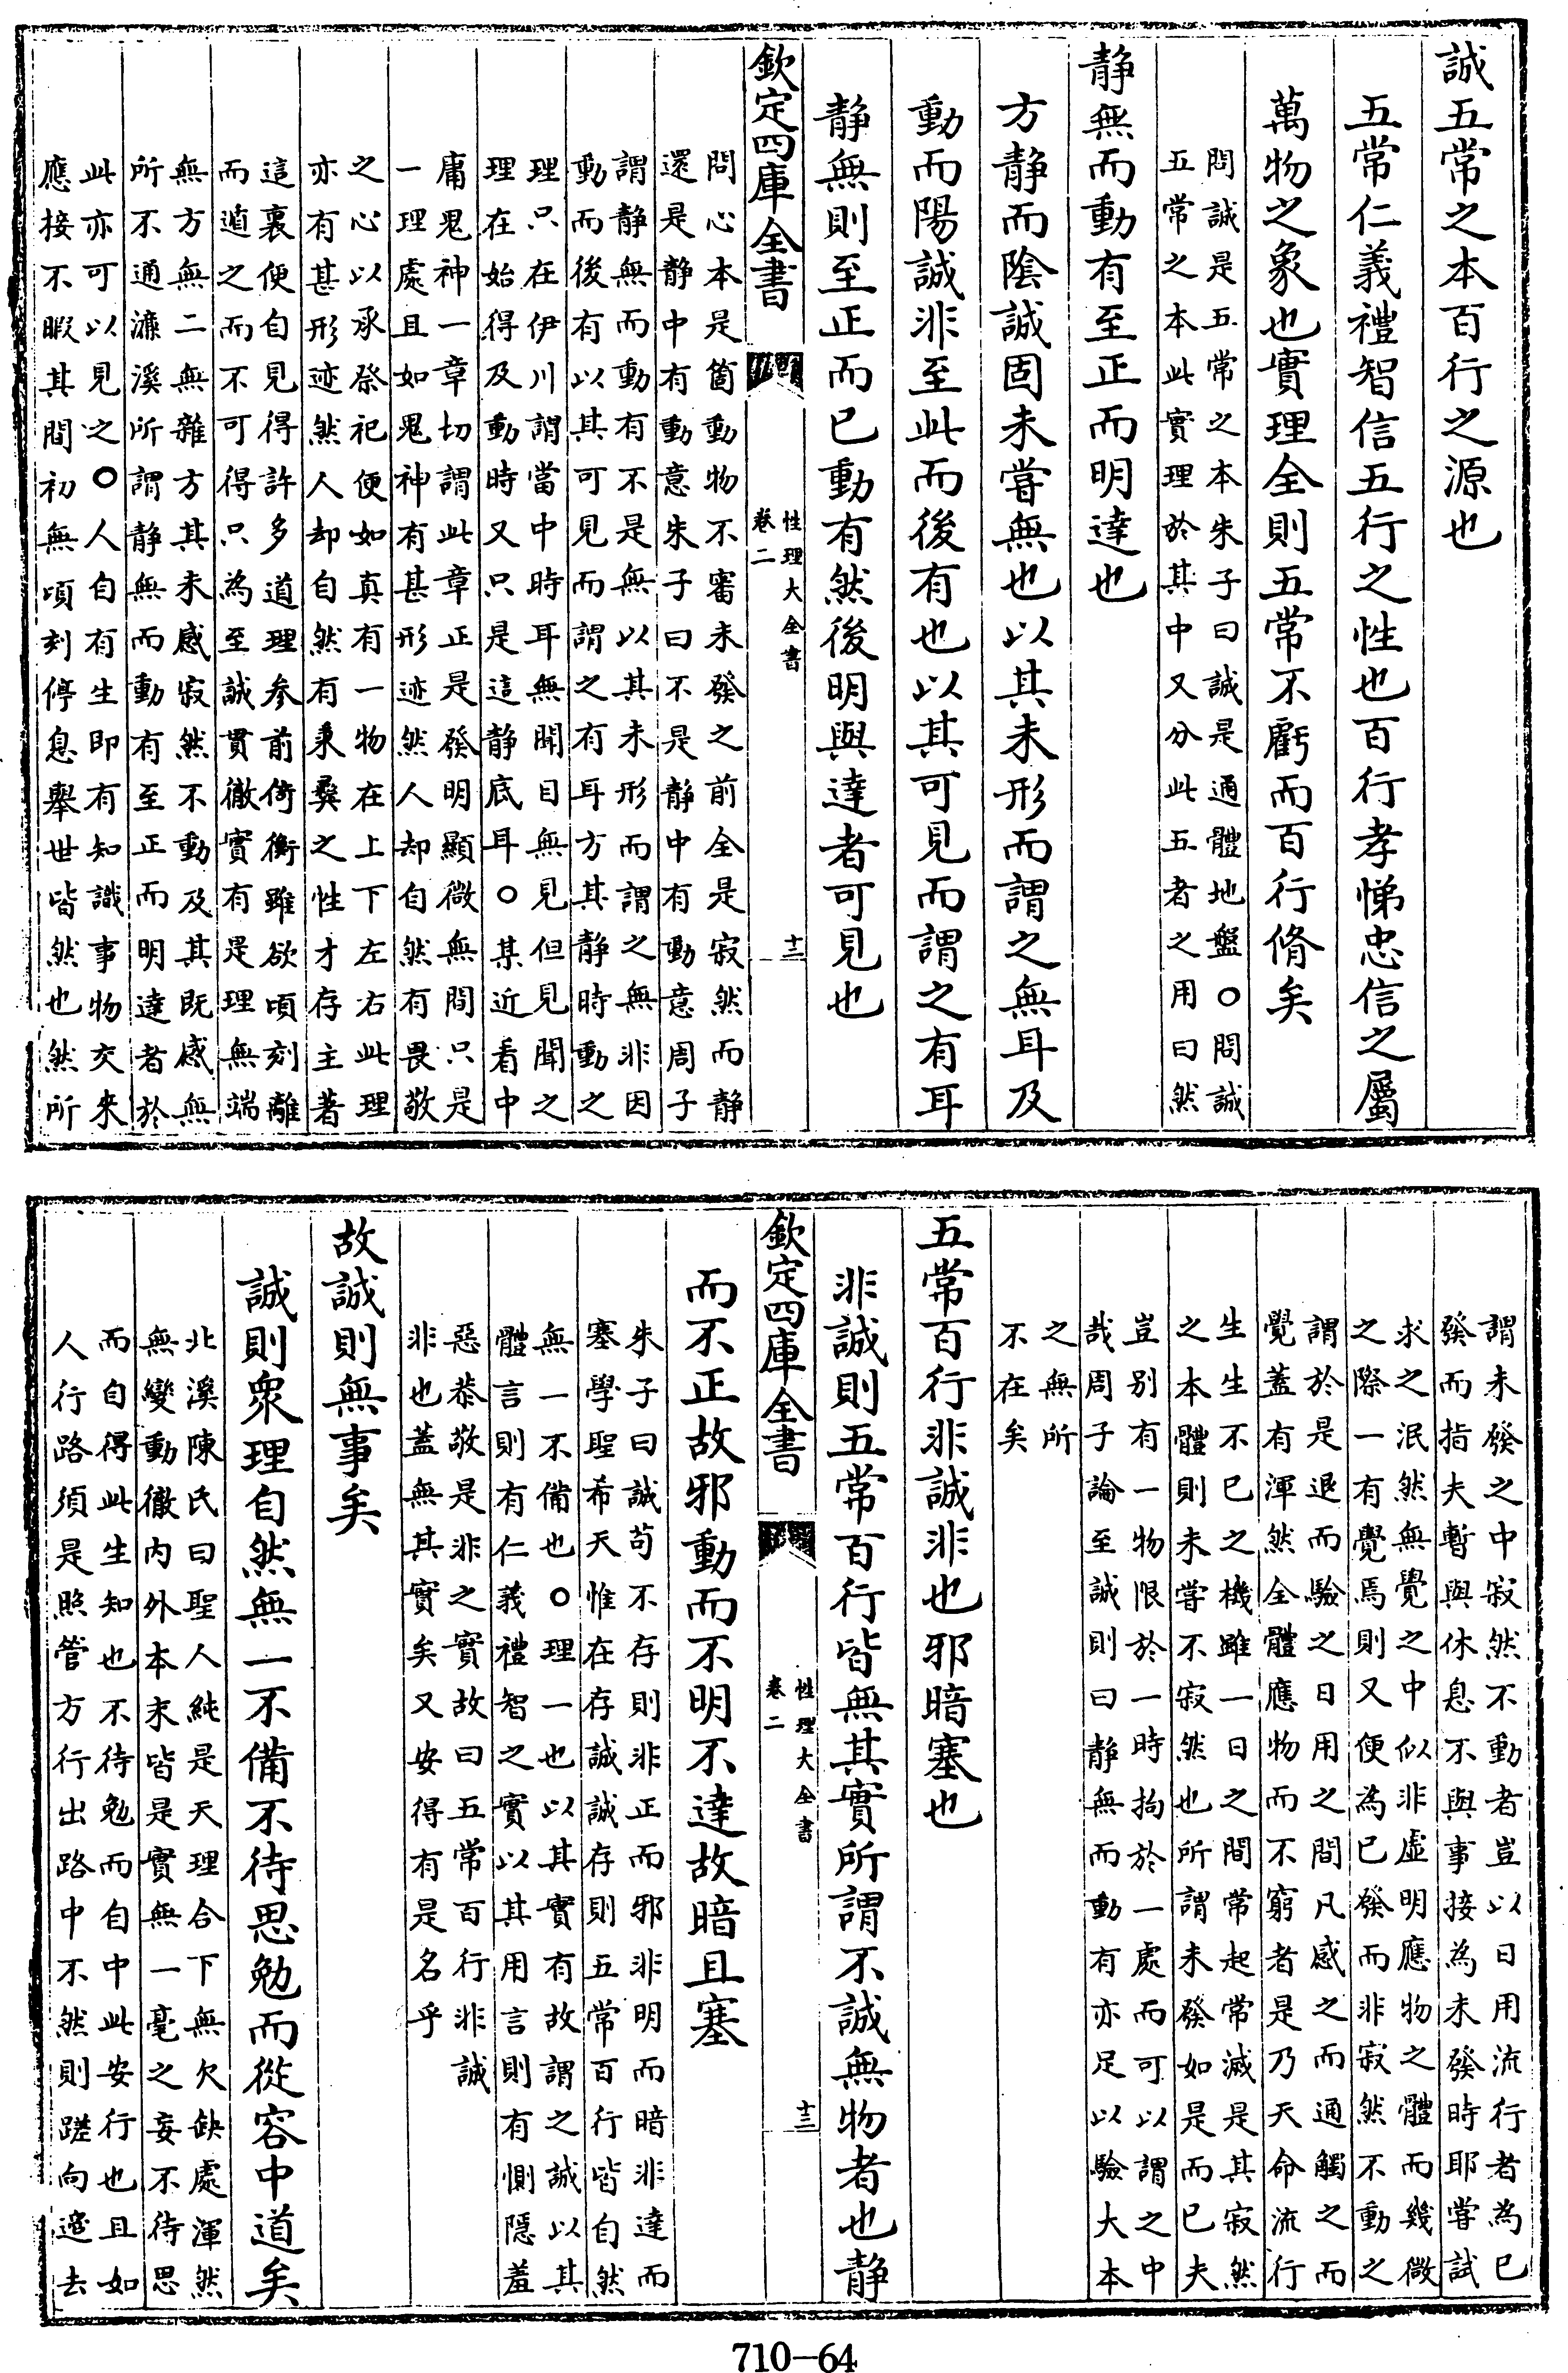 誠五常之本百行之源也
五常仁義禮智信五行之性也百行孝悌忠信之屬
萬物之象也實理全則五常不虧而百行脩矣
問誠是五常之本朱子曰誠是通體地盤○問誠
五常之本此實理於其中又分此五者之用曰然
静無而動有至正而明達也
方静而陰誠固未嘗無也以其未形而謂之無耳及
動而陽誠非至此而後有也以其可見而謂之有耳
静無則至正而已動有然後明與達者可見也
欽定四庫全書
性理大全書
卷二
十二
問心本是箇動物不審未發之前全是寂然而静
還是静中有動意朱子曰不是静中有動意周子
謂静無而動有不是無以其未形而謂之無非因
動而後有以其可見而謂之有耳方其静時動之
理只在伊川謂當中時耳無聞目無見但見聞之
理在始得及動時又只是這静底耳○某近看中
庸鬼神一章切謂此章正是發明顯微無間只是
一理處且如鬼神有甚形迹然人却自然有畏敬
之心以承祭祀便如真有一物在上下左右此理
亦有甚形迹然人却自然有秉彝之性才存主著
這裏便自見得許多道理参前倚衡雖欲頃刻離
而遁之而不可得只為至誠貫徹實有是理無端
無方無二無雜方其未感寂然不動及其既感無
所不通濂溪所謂静無而動有至正而明達者於
此亦可以見之○人自有生即有知識事物交來
應接不暇其間初無頃刻停息舉世皆然也然所
謂未發之中寂然不動者豈以日用流行者為已
發而指夫暫與休息不與事接為未發時耶嘗試
求之泯然無覺之中似非虚明應物之體而幾微
之際一有覺焉則又便為已發而非寂然不動之
謂於是退而驗之日用之間凡感之而通觸之而
覺蓋有渾然全體應物而不窮者是乃天命流行
生生不已之機雖一日之間常起常滅是其寂然
之本體則未嘗不寂然也所謂未發如是而已夫
豈别有一物限於一時拘於一處而可以謂之中
哉周子論至誠則曰静無而動有亦足以驗大本
之無所
不在矣
五常百行非誠非也邪暗塞也
非誠則五常百行皆無其實所謂不誠無物者也静
欽定四庫全書
性理大全書
卷二
十三
而不正故邪動而不明不達故暗且塞
朱子曰誠苟不存則非正而邪非明而暗非達而
塞學聖希天惟在存誠誠存則五常百行皆自然
無一不備也○理一也以其實有故謂之誠以其
體言則有仁義禮智之實以其用言則有惻隠羞
惡恭敬是非之實故曰五常百行非誠
非也蓋無其實矣又安得有是名乎
故誠則無事矣
誠則衆理自然無一不備不待思勉而從容中道矣
北溪陳氏曰聖人純是天理合下無欠缺處渾然
無變動徹内外本末皆是實無一毫之妄不待思
而自得此生知也不待勉而自中此安行也且如
人行路須是照管方行出路中不然則蹉向邊去
710-64